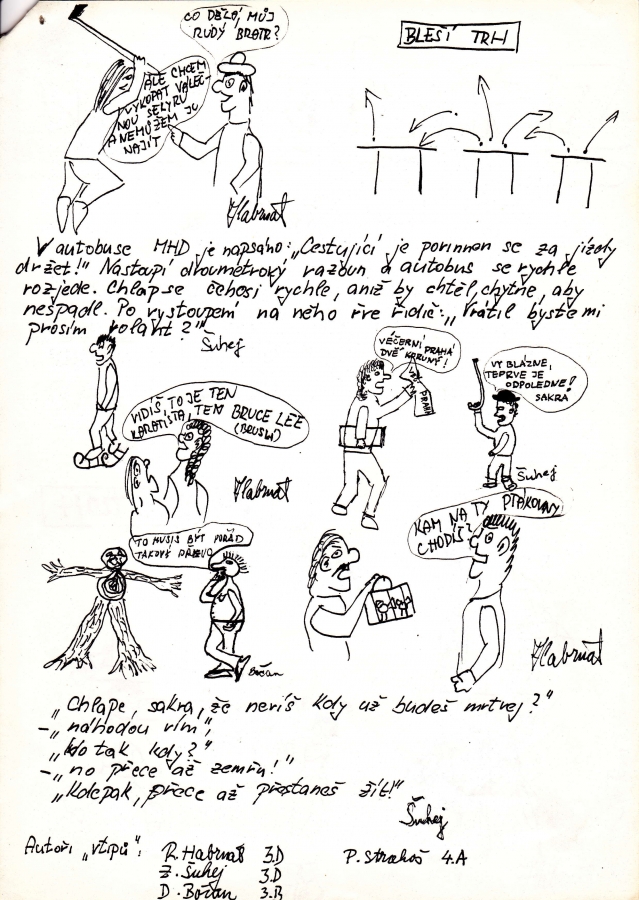 CO DĚLÁ, MŮJ
RUDÝ BRATR?
ALE CHCEM
VYKOPAT VÁLEČ-
NOU SEKYRU
A NEMŮŽEM JU
NAJÍT
Habrnát
BLEŠÍ TRH
V autobuse MHD je napsáno: „Cestující je povinnen se za jízdy
držet!" Nastoupí dvoumetrový razoun a autobus se rychle
rozjede. Chlap se čehosi rychle, aniž by chtěl, chytne, aby
nespadl. Po vystoupení na něho řve řidič: „Vrátil byste mi
prosím volant?"
Šuhej
VIDÍŠ, TO JE TEN
KARATISTA, TEN BRUCE LEE
(BRUSLÍ)
Habrnát
VEČERNÍ PRAHA
DVĚ KORUNY!
VEČ
PRAH
VY BLÁZNE,
TEPRVE JE
ODPOLEDNE!
SAKRA
Šuhej
TO MUSÍŠ BÝT POŘÁD
TAKOVÝ DŘEVO
Bočan
KAM NA TY PTÁKOVINY
CHODÍŠ?
Habrnát
„Chlape, sakra, že nevíš kdy už budeš mrtvej?"
-„náhodou vím",
„No tak kdy?"
-„no přece až zemřu!"
„Kdepak, přece až přestaneš žít!"
Šuhej
Autoři „vtipů": R. Habrnát 3.D P. Strahoš 4.A
Z. Šuhej 3.D
D. Bočan 3.B